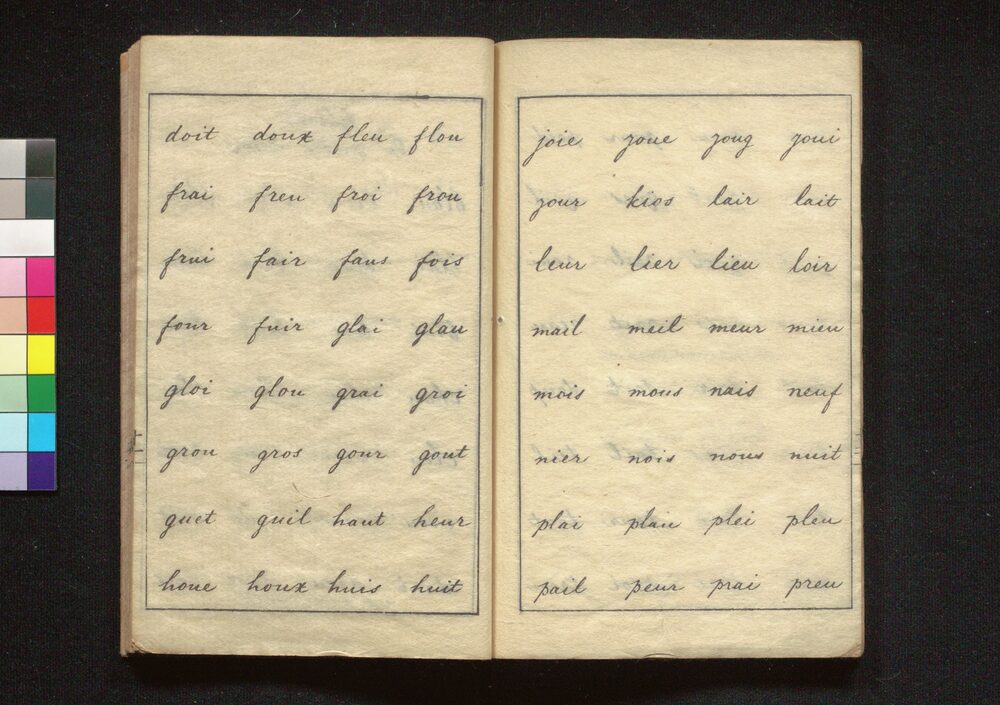 doit doux fleu flou
frai freu froi frou
frui fair faus fois
four fuir glai glau
gloi glou grai groi
grou gros gour gout
guet guil haut heur
houe houx huis huit
joie joue joug joui
jour kios lair lait
leur lier lieu loir
mail meil meur mieu
mois mous nais neuf
nier nois nous nuit
plai plau plei pleu
pail peur prai preu